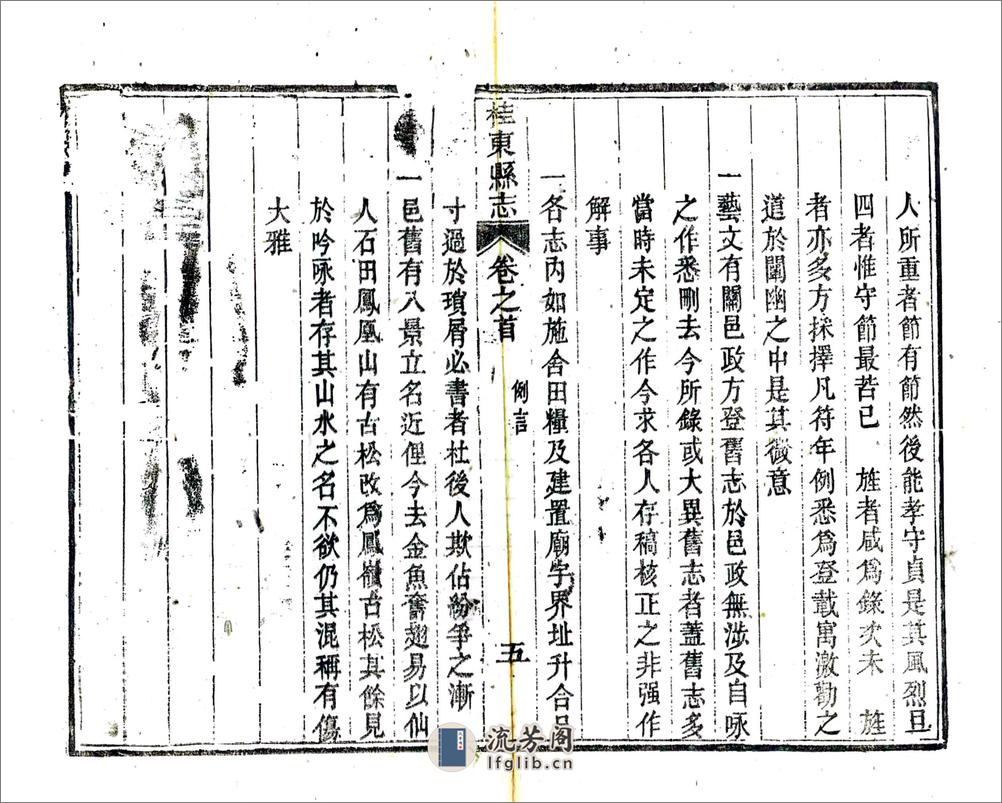 人所重者節有節然後能孝守貞是其風烈且
四者惟守節最苦已　旌者咸為錄次未　旌
者亦多方採擇凡符年例悉為登載寓激勸之
道於闡幽之中是其微意
一藝文有關邑政方登舊志於邑政無涉及自咏
之作悉刪去今所錄或大異舊志者蓋舊志多
當時未定之作今求各人存稿核正之非强作
解事
一各志內如施舍田糧及建置廟宇界址升合
桂東縣志　卷之首　例言　五
寸過於瑣屑必書者杜後人欺佔紛爭之漸
一邑舊有八景立名近俚今去金魚奮翅易以仙
人石田鳳凰山有古松改為鳳嶺古松其餘見
於吟咏者存其山水之名不欲仍其混稱有傷
大雅
流芳阁
lfglib.cn